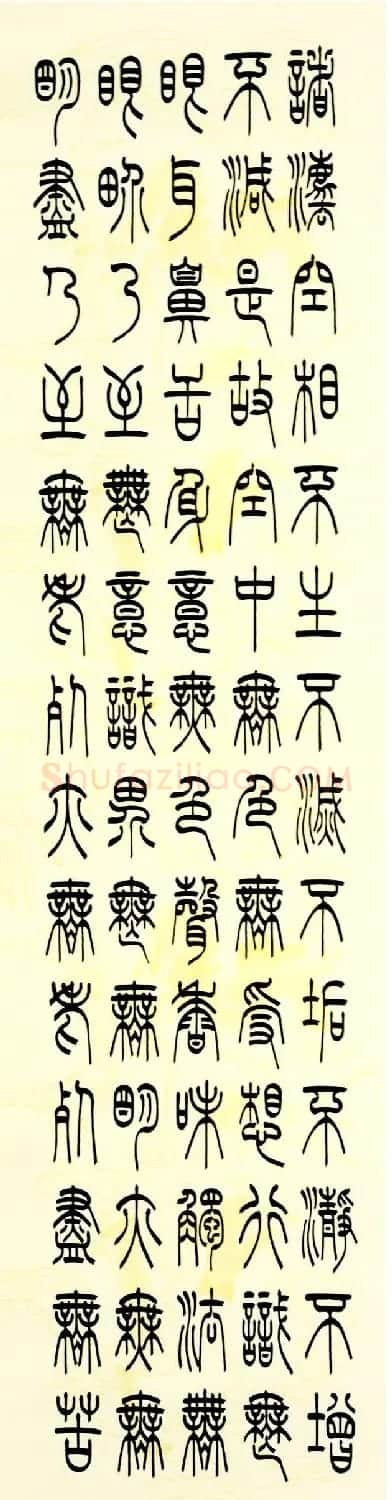 諸法空相不生不滅不垢不淨不增
不減是故空中無色無受想行識無
眼耳鼻舌身意無色聲香味觸法無
眼界乃至無意識界無無明亦無無
明盡乃至無老死亦無老死盡無苦
Shufaziliao.COM